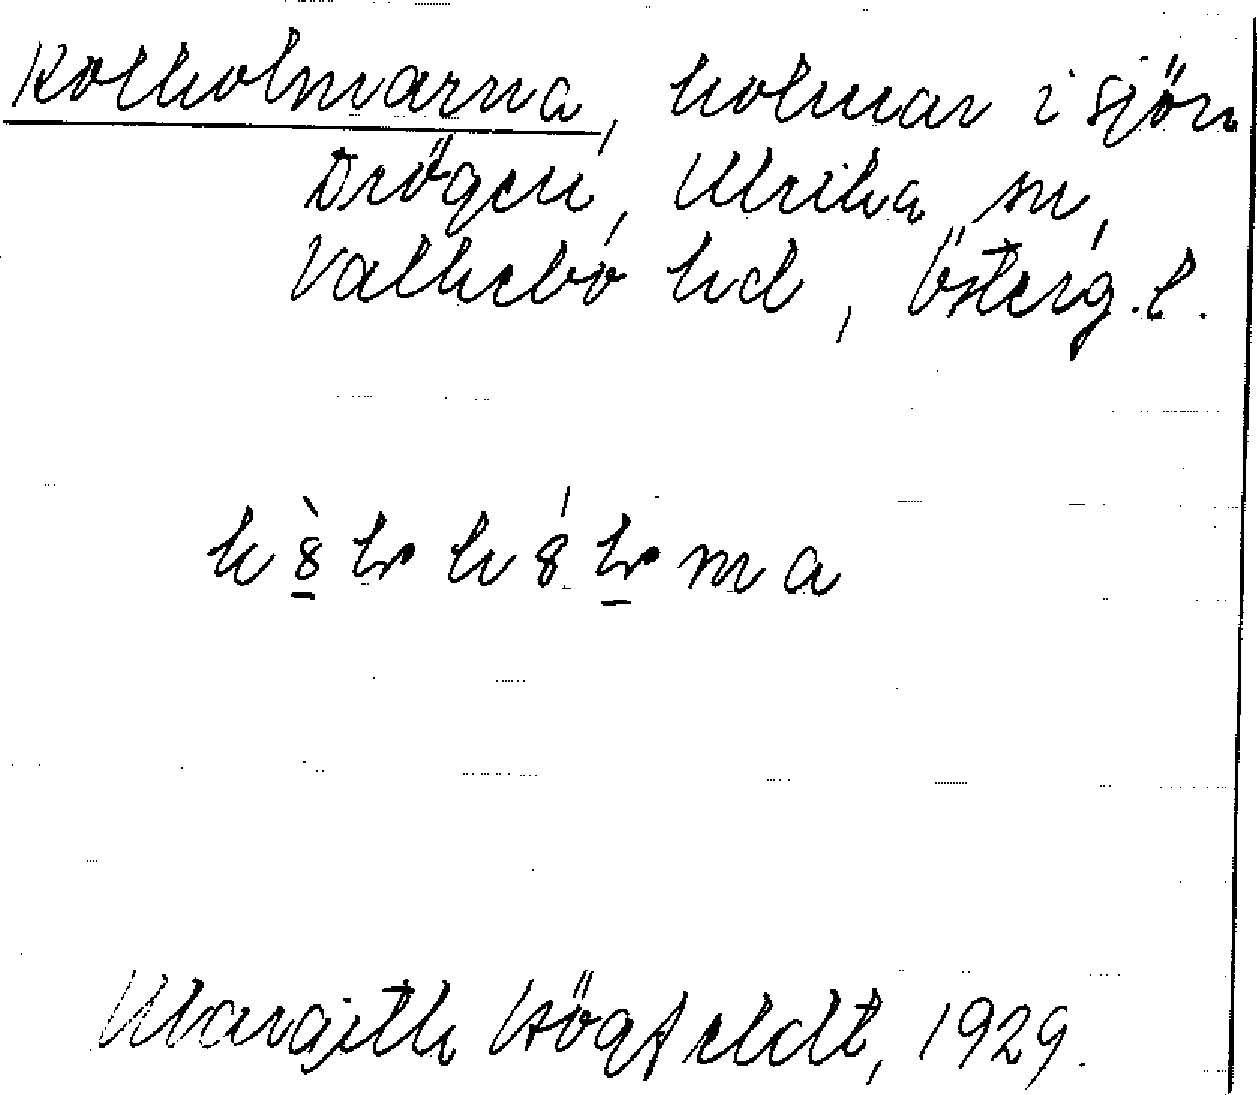 Kolholmarna, holmar i sjön
Drögen, Ulrika sn,
Valkebo hd, Österg.l.
Margith Högfeldt, 1929.